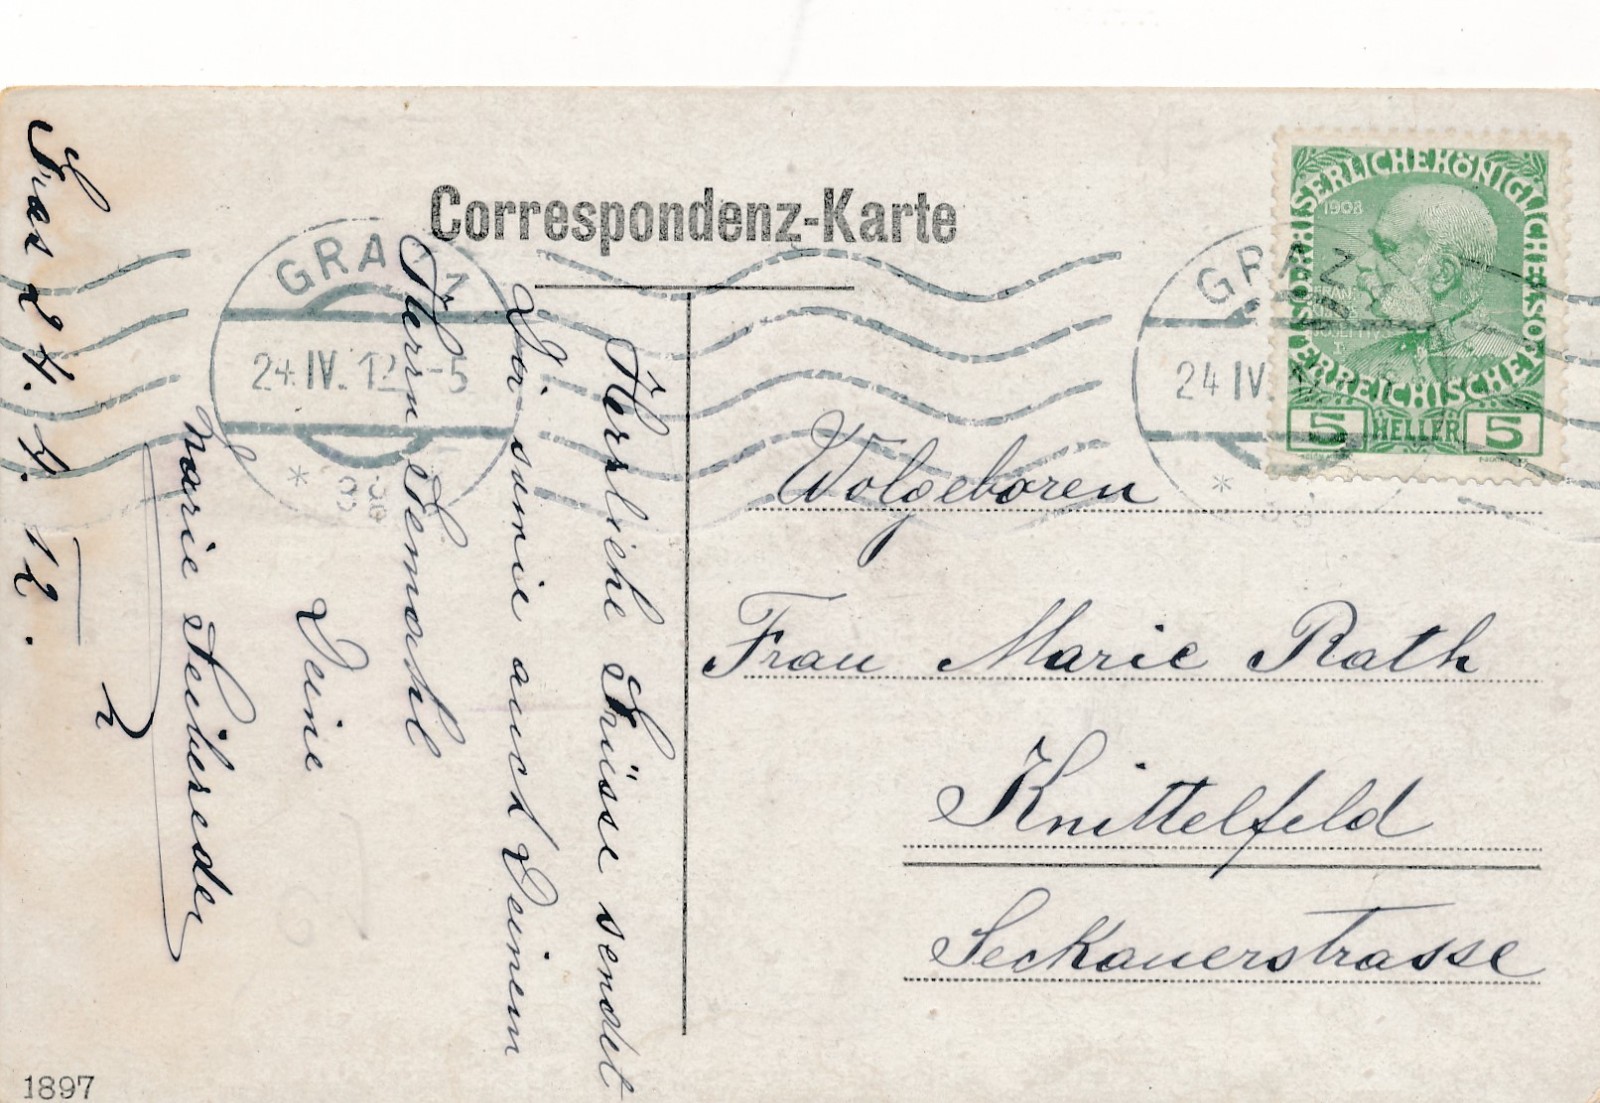 Correspondenz-Karte
Graz 24. 4. 12.
Herzliche Grüsse sendet
Dir sowie auch Deinem
Herrn Gemahl
Deine
Marie
GRAZ
24.IV.12 -5
GRAZ
24 IV
KAISERLICHE KÖNIGLICHE ÖSTERREICHISCHE POST
1908
FRANZ
JOSEPH
I.
5 HELLER 5
Wolgeboren
Frau Marie Rath
Knittelfeld
Seckauerstrasse
1897